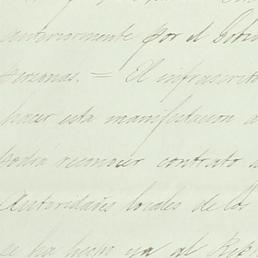 anteriormente por el Gobier
personas. = El infrascrito
hacer esta manifestacion a
podrá reconocer contrato a
Autoridades locales de los
se ha hecho ya al Rep